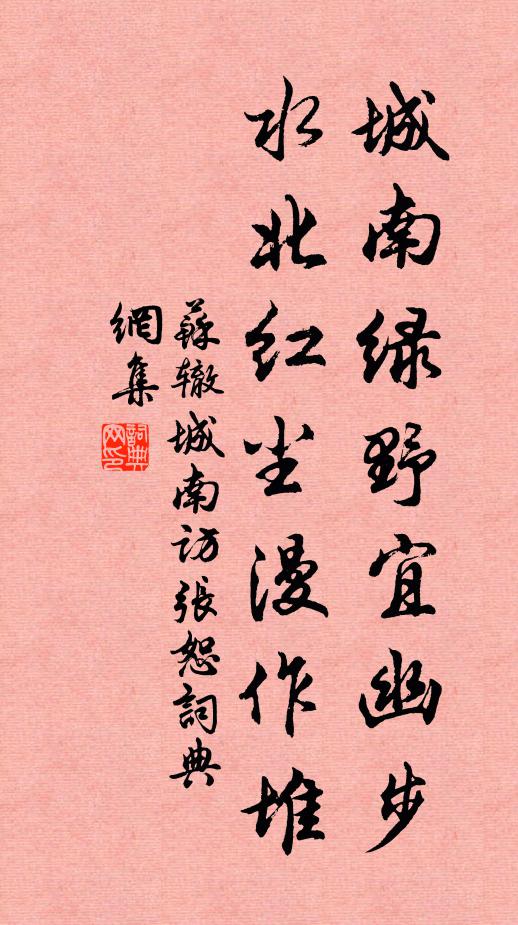 城南绿野宜幽步
水北红尘漫作堆
蘇辙城南访張恕詞典
網集
詞典
网印